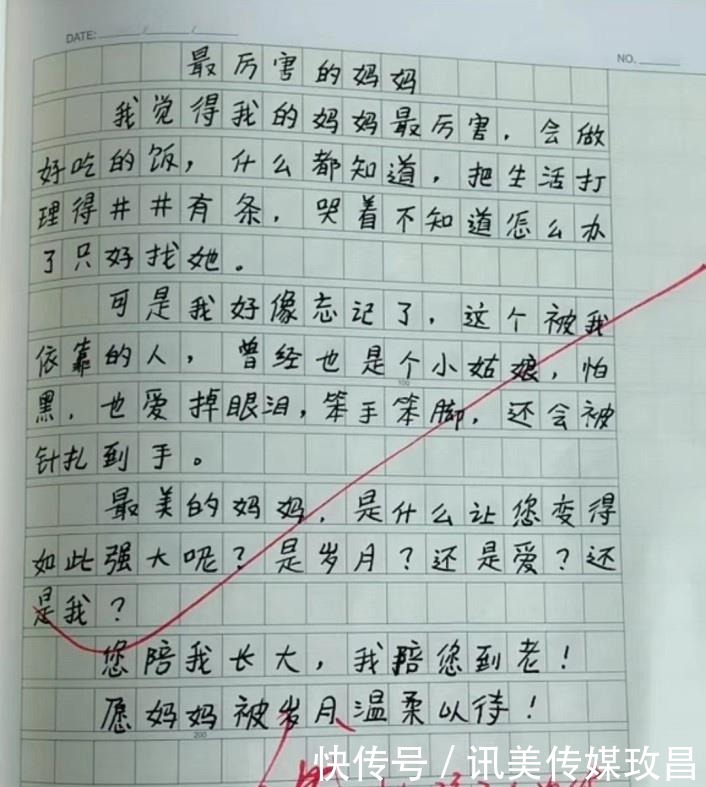 DATE: / /
NO.
最厉害的妈妈
我觉得我的妈妈最厉害，会做
好吃的饭，什么都知道，把生活打
理得井井有条，哭着不知道怎么办
了只好找她。
可是我好像忘记了，这个被我
依靠的人，曾经也是个小姑娘，怕
黑，也爱掉眼泪，笨手笨脚，还会被
针扎到手。
100
最美的妈妈，是什么让您变得
如此强大呢？是岁月？还是爱？还
是我？
您陪我长大，我陪您到老！
愿妈妈被岁月温柔以待！
200
快传号/讯美传媒玫昌